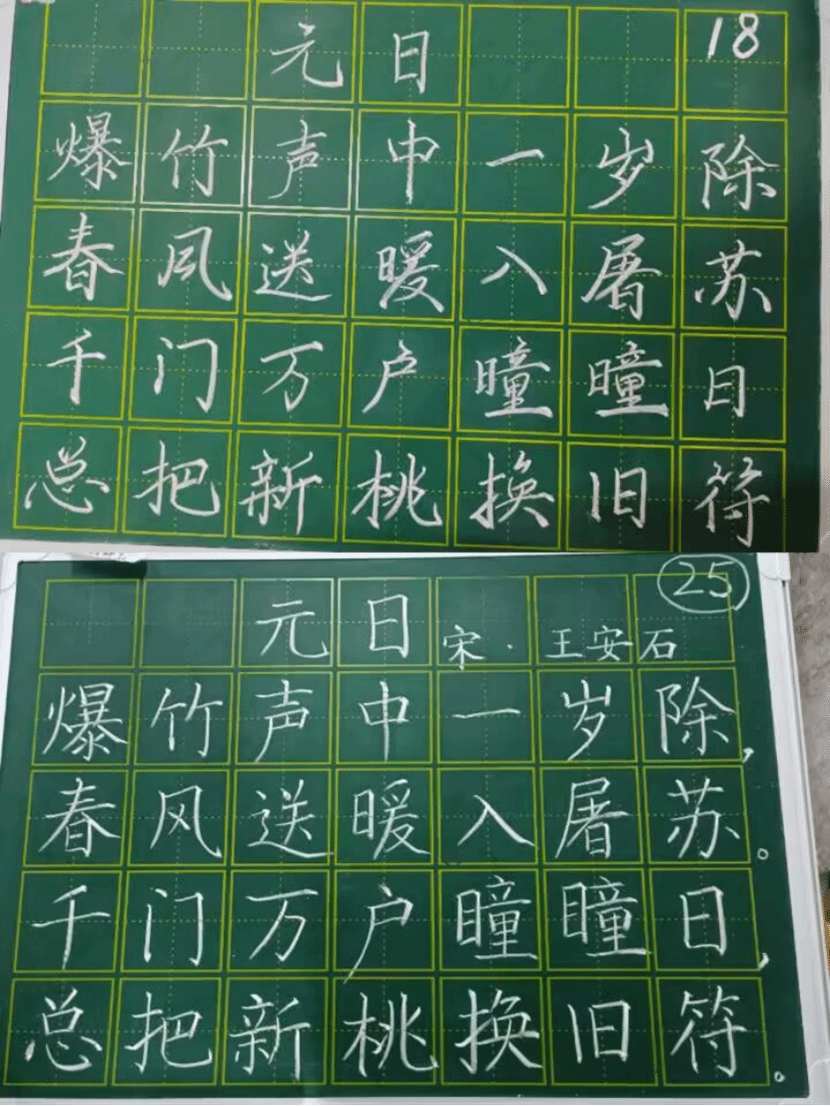 元日 18
爆竹声中一岁除
春风送暖入屠苏
千门万户曈曈日
总把新桃换旧符
25
元日 宋·王安石
爆竹声中一岁除,
春风送暖入屠苏。
千门万户瞳瞳日,
总把新桃换旧符。